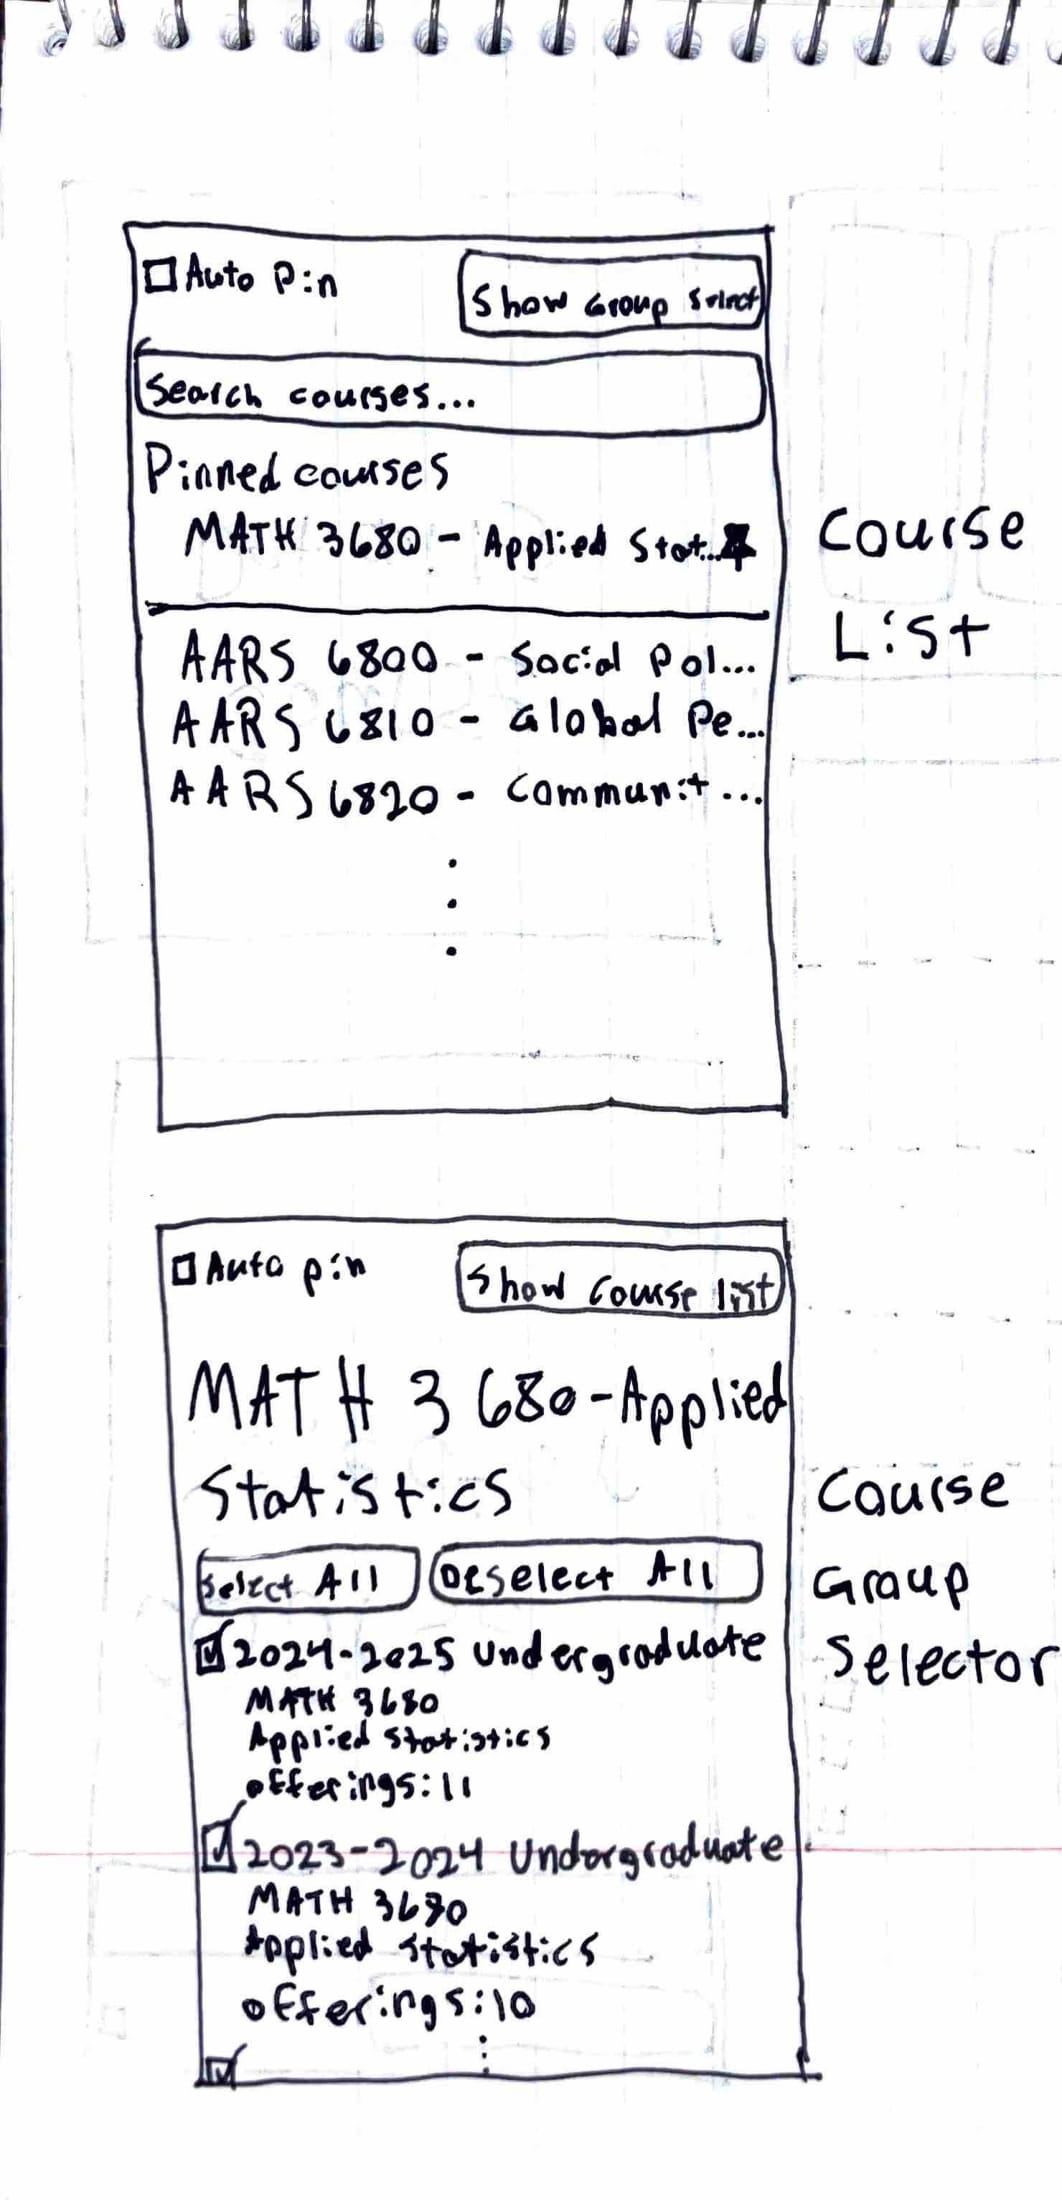 Auto Pin
Show Group Select
Search courses...
Pinned courses
MATH 3680 - Applied Stat...
AARS 6800 - Social Pol...
AARS 6810 - Global Pe...
AARS 6820 - Communit...
Course
List
Auto pin
Show Course list
MATH 3680-Applied
Statistics
Select All
Deselect All
2024-2025 Undergraduate
MATH 3680
Applied Statistics
offerings:11
2023-2024 Undergraduate
MATH 3680
Applied Statistics
offerings:10
Course
Group
Selector